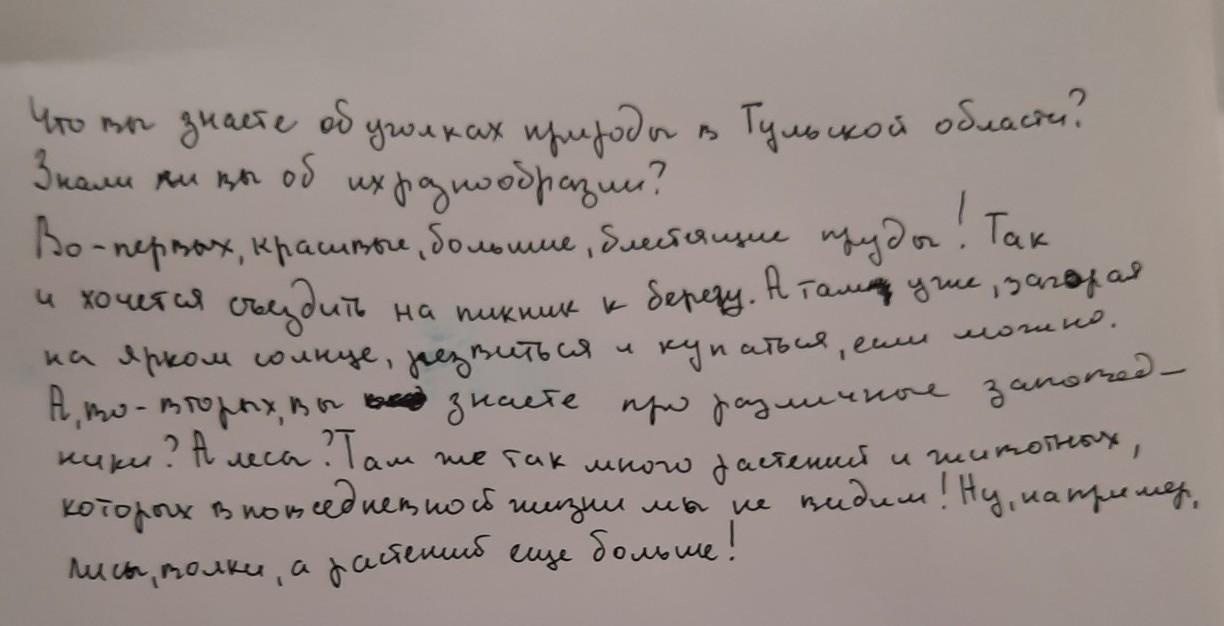 Что вы знаете об уголках природы в Тульской области?
Знали ли вы об их разнообразии?
Во-первых, красивые, большие, блестящие пруды! Так
и хочется съездить на пикник к берегу. А там уже, загорая
на ярком солнце, резвиться и купаться, если можно.
А, во-вторых, вы знаете про различные заповед-
ники? А леса? Там же так много растений и животных,
которых в повседневной жизни мы не видим! Ну, например,
лисы, волки, а растений еще больше!